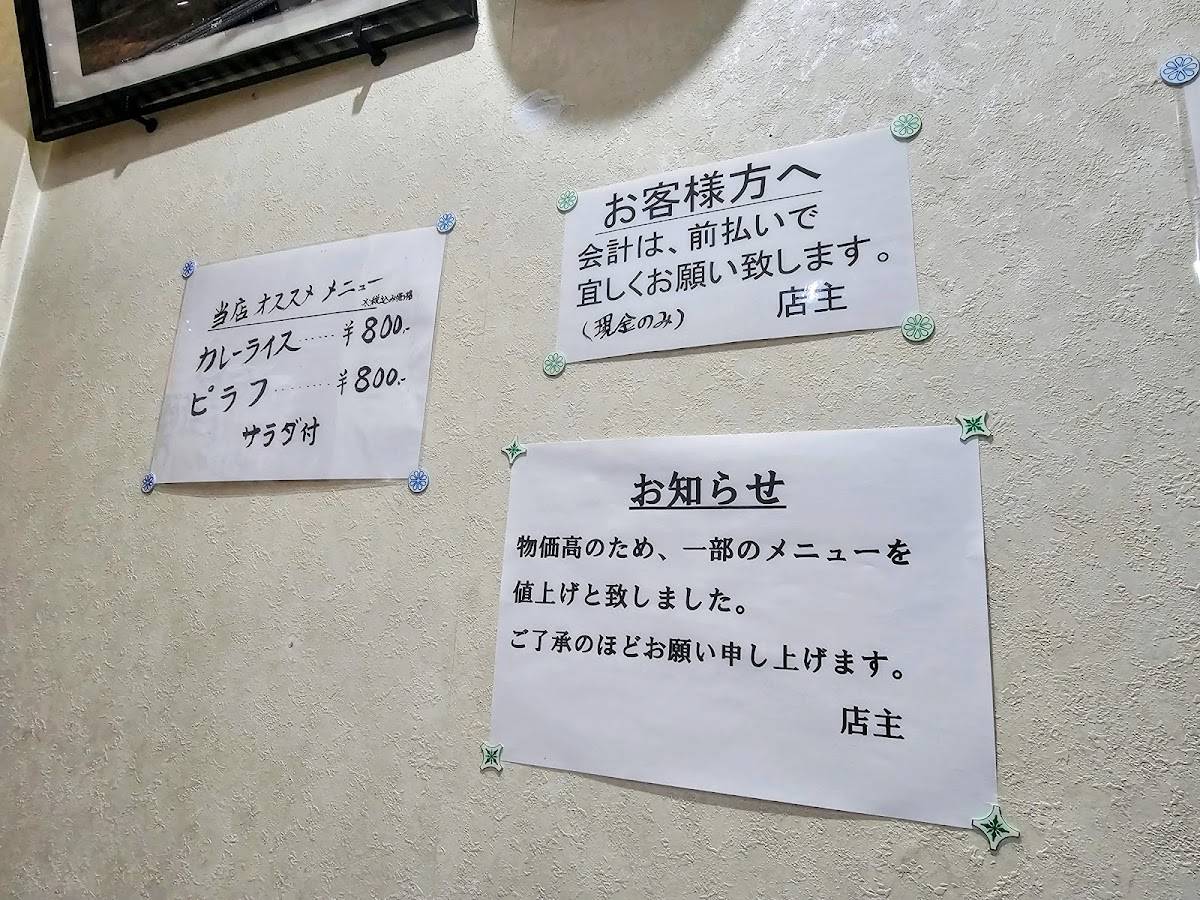 当店オススメメニュー
※税込み価格
カレーライス……¥800.-
ピラフ………¥800.-
サラダ付
お客様方へ
会計は、前払いで
宜しくお願い致します。
(現金のみ)
店主
お知らせ
物価高のため、一部のメニューを
値上げと致しました。
ご了承のほどお願い申し上げます。
店主